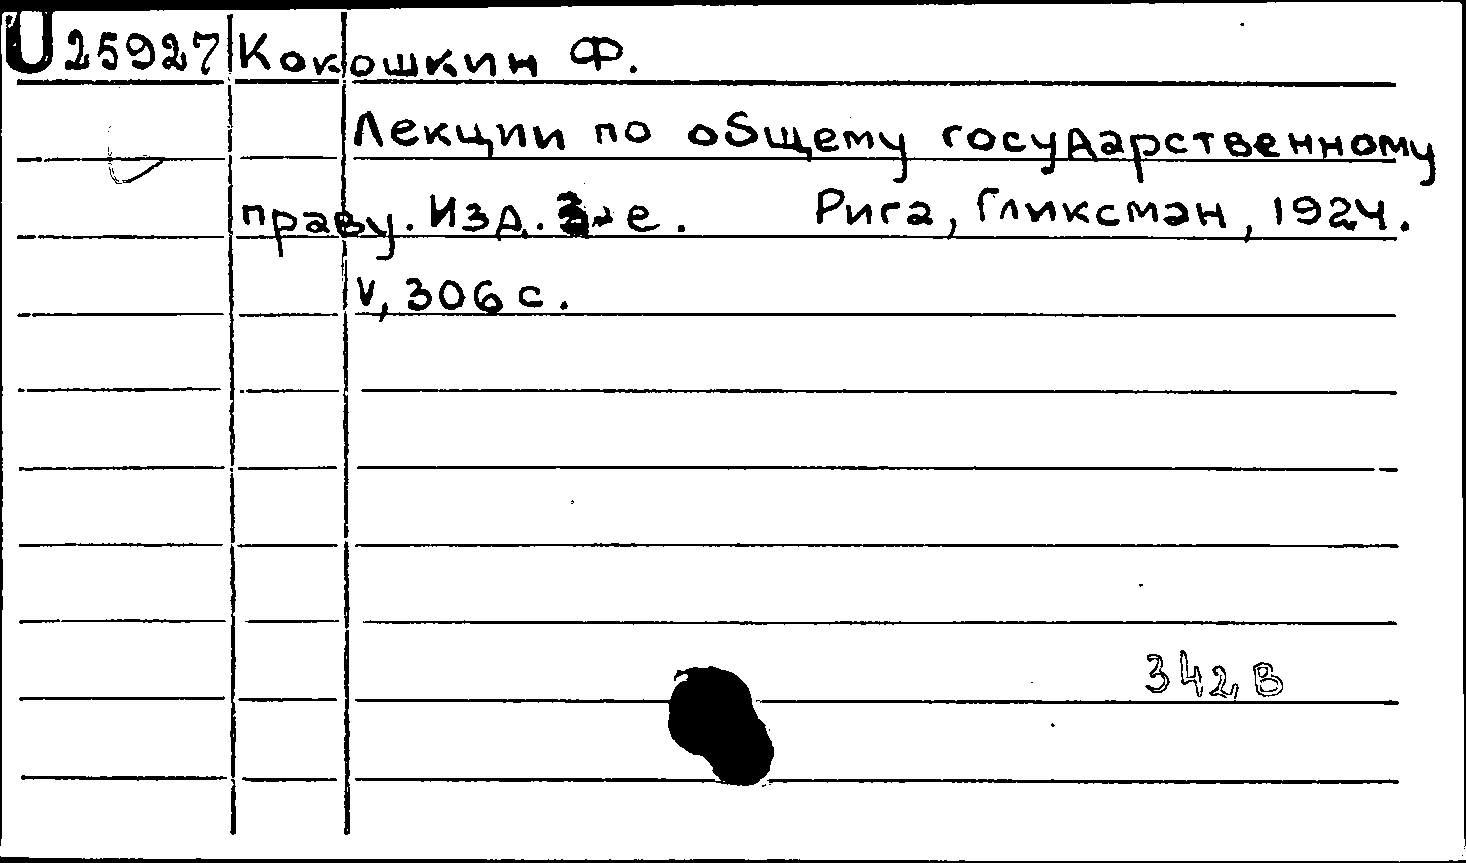 U 25927 Кокошкин Ф.
Лекции по общему государственному
праву. Изд. е. Рига, Гликсман, 1924.
V, 306 с.
342 В